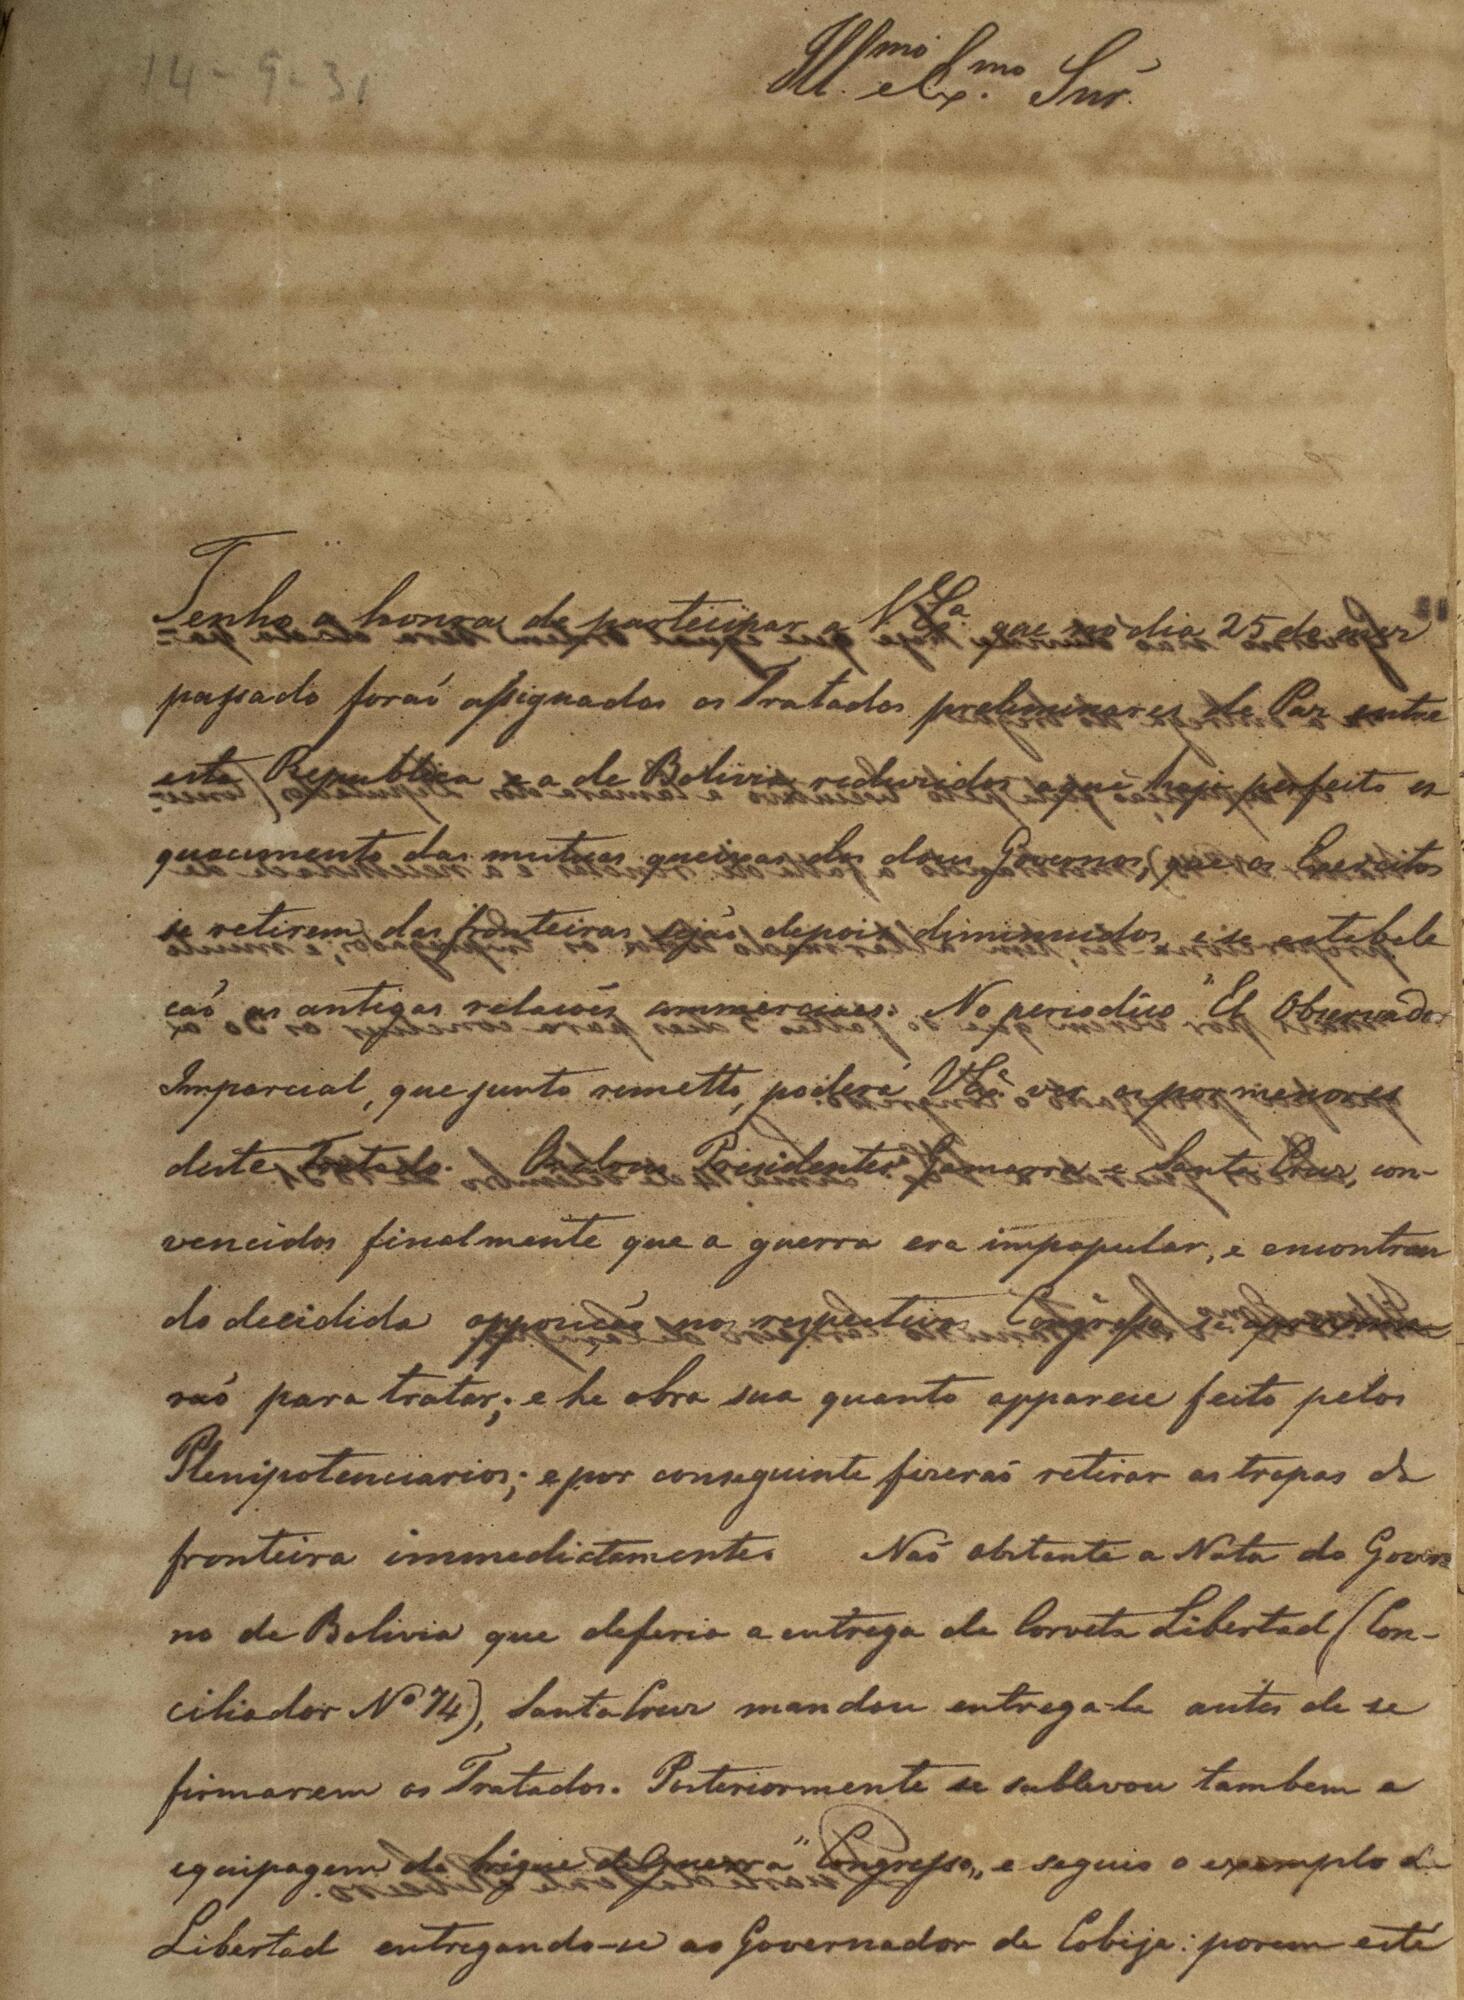 14-9-31
Ill.mo e Ex.mo Snr.
Tenho a honra de participar a V.Ex.a que no dia 25 do mez
passado foraõ assignados os Tratados preliminares de Paz entre
esta Republica e a de Bolivia reduzidos a que haja perfeito es
quecimento das mutuas queixas dos dous Governos, que os Exercitos
se retirem das fronteiras sejaõ depois diminuidos, e se estabele
caõ as antigas relacoẽs commerciaes. No periodico "El Observador
Imparcial, que junto remetto, poderá V.Ex.a ver os pormenores
deste Tratado. Os dous Presidentes Gamarra e Santa Cruz, con-
vencidos finalmente que a guerra era impopular, e encontran
do decidida opposicaõ nos respectivos Congressos se aproxima
raõ para tratar; e he obra sua quanto apparece feito pelos
Plenipotenciarios; e por conseguinte fizeraõ retirar as tropas da
fronteira immediatamente. Naõ obstante a Nota do Gover
no de Bolivia que deferia a entrega da Corveta Libertad (Con-
ciliador Nº 74), Santa Cruz mandou entrega-la antes de se
firmarem os Tratados. Posteriormente se sublevou tambem a
equipagem do brigue de Guerra "Congresso," e seguio o exemplo da
Libertad entregando-se ao Governador de Cobija: porem este